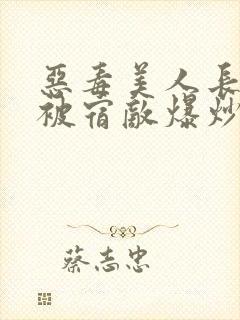 惡毒美人長
被宿敵爆炒
蔡志忠